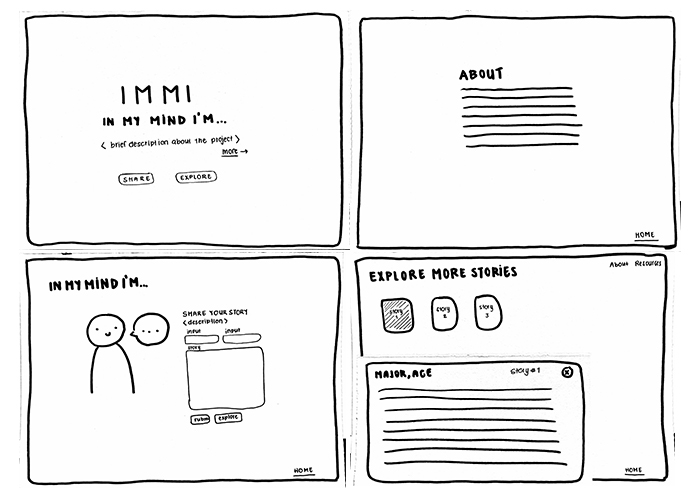 IMMI
IN MY MIND I'M...
< brief description about the project >
more →
SHARE EXPLORE
ABOUT
HOME
IN MY MIND I'M...
...
SHARE YOUR STORY
<description>
input input
story
submit explore
HOME
About Resources
EXPLORE MORE STORIES
story 1
story 2
story 3
MAJOR, AGE story #1 X
HOME